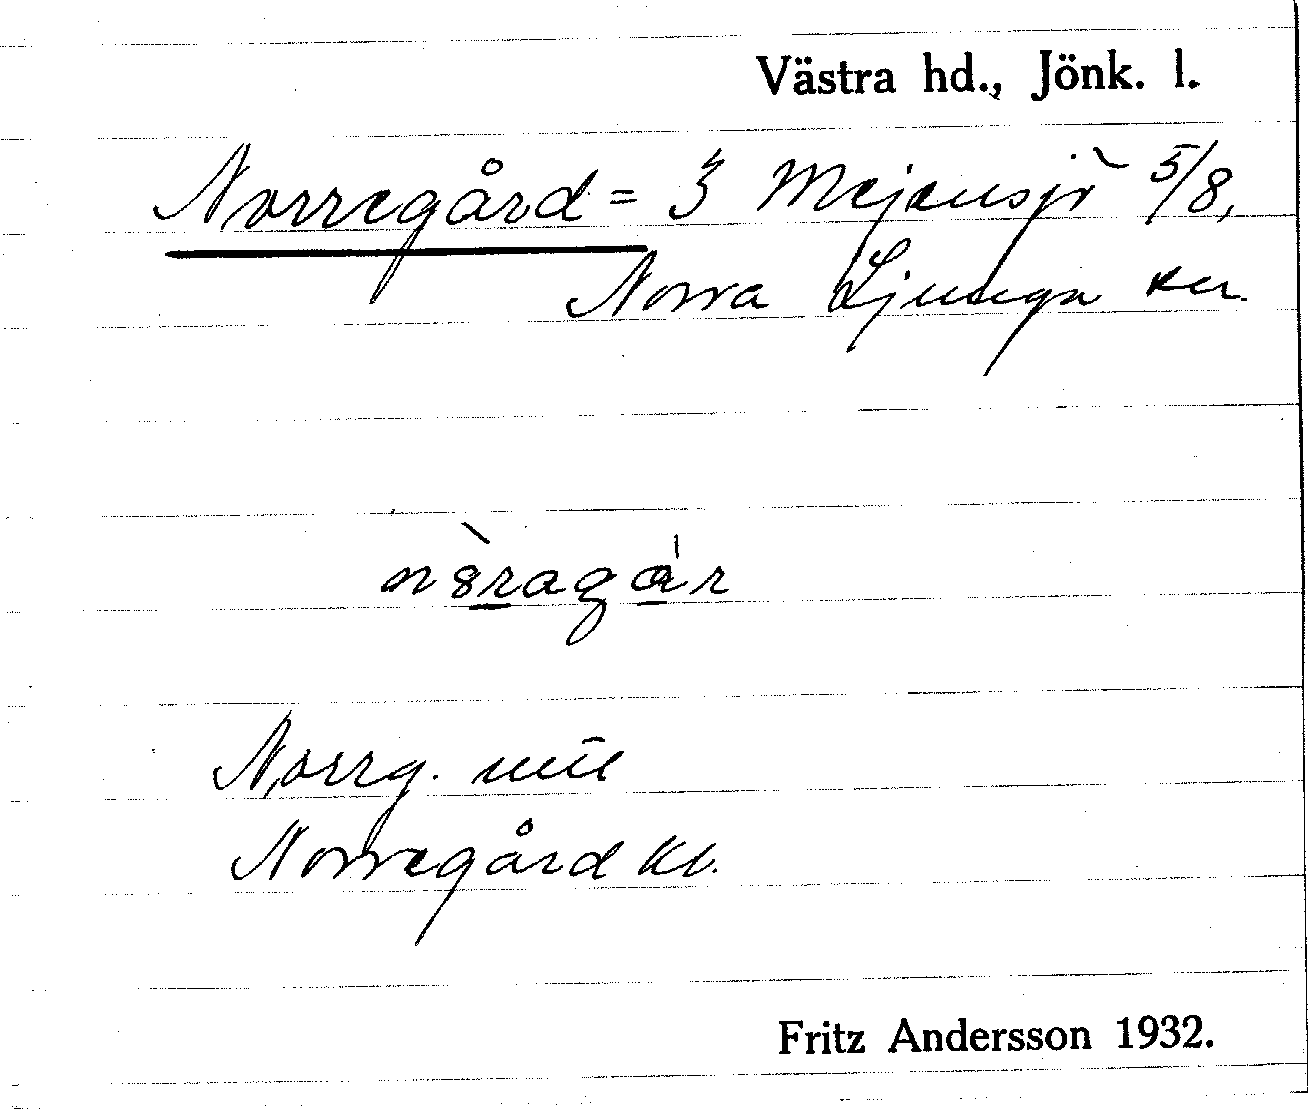 Västra hd., Jönk. l.
Norregård = 3 Mejensjö 5/8,
Norra Ljunga sn.
n8ragár
Norrg.
Norregård kb.
Fritz Andersson 1932.